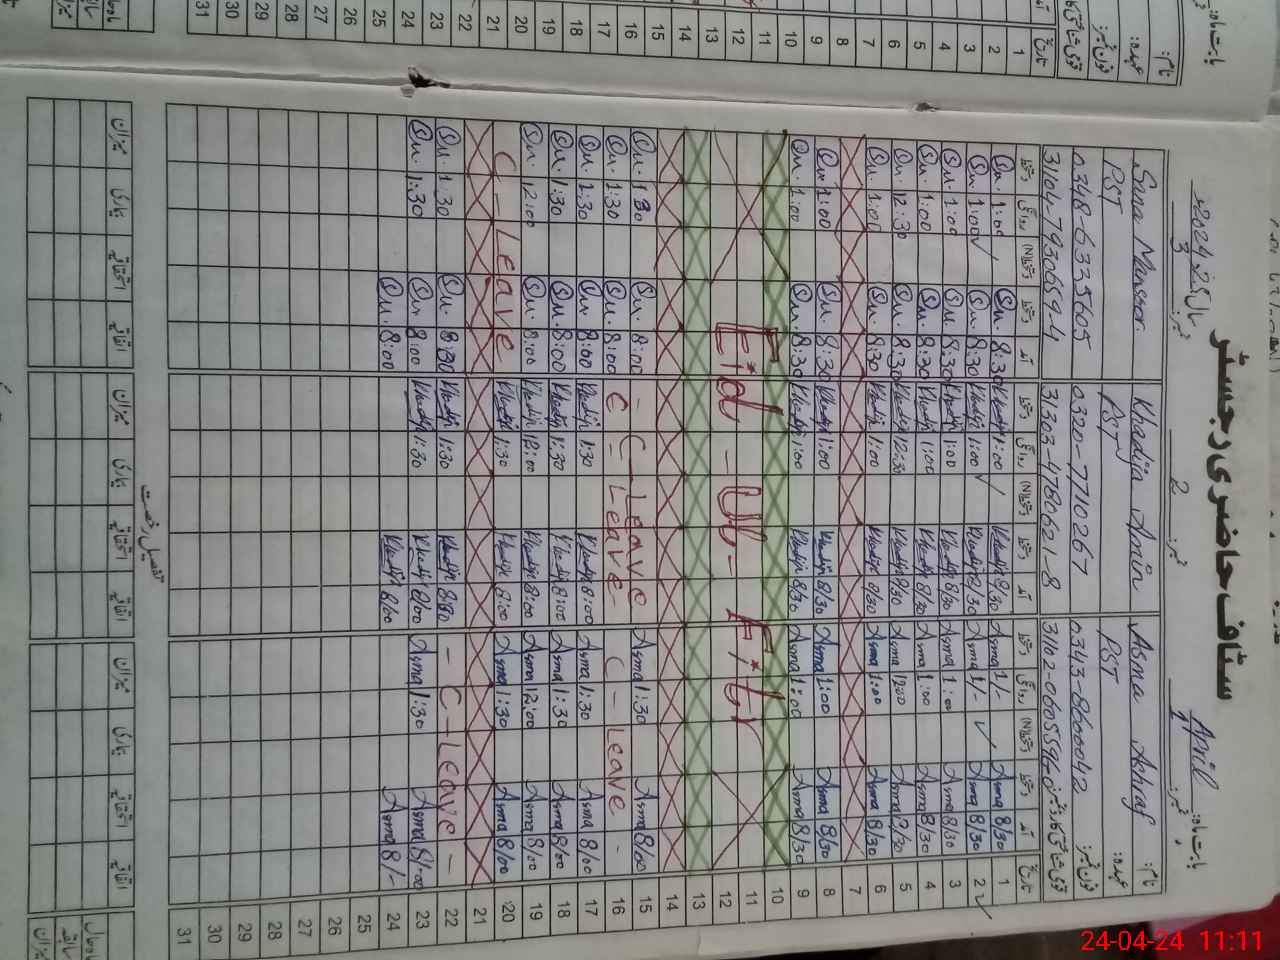 سٹاف حاضری رجسٹر
بابت ماہ: April سال 2024
نمبر: 1 نمبر: 2 نمبر: 3
نام: Asma Ashraf Khadija Amin Sana Manzoor
عہدہ: PST PST PST
فون نمبر: 0343-8600042 0320-7710267 0348-6335605
قومی شناختی کارڈ نمبر: 31303-4780621-8 31104-7930659-4
تاریخ آمد دستخط روانگی دستخط آمد دستخط روانگی دستخط آمد دستخط روانگی دستخط
1 8/30 Asma 1/- Asma 8/30 Khadija 1:00 Khadija 8:30 1:00
2 8/30 Asma 1/- Asma 8/30 Khadija 1:00 Khadija 8:30 1:00
3 8/30 Asma 1:00 Asma 8/30 Khadija 1:00 Khadija 8:30 1:00
4 8/30 Asma 1:00 Asma 8/30 Khadija 1:00 Khadija 8:30 1:00
5 8/30 Asma 12:00 Asma 8/30 Khadija 12:30 Khadija 8:30 12:30
6 8/30 Asma 1:00 Asma 8/30 Khadija 1:00 Khadija 8:30 1:00
7
8 8/30 Asma 1:00 Asma 8/30 Khadija 1:00 Khadija 8:30 1:00
9 8/30 Asma 1:00 Asma 8/30 Khadija 1:00 Khadija 8:30 1:00
10
11
Eid - Ul - Fitr
12
13
14
15 8/00 Asma 1:30 Asma C - Leave 8:00 1:30
16 C - Leave - C - Leave - 8:00 1:30
17 8/00 Asma 1:30 Asma 8:00 Khadija 1:30 Khadija 8:00 1:30
18 8/00 Asma 1:30 Asma 8:00 Khadija 1:30 Khadija 8:00 1:30
19 8/00 Asma 12:00 Asma 8:00 Khadija 12:00 Khadija 8:00 12:00
20 8/00 Asma 1:30 Asma 8:00 Khadija 1:30 Khadija C - Leave
21
22 - C - Leave - Khadija 1:30 Khadija 1:30
23 8/00 Asma 1:30 Asma 8/00 Khadija 1:30 Khadija 8:00 1:30
24 8/- Asma 8/00 Khadija 8:00
25
26
27
28
29
30
31
تفصیل رخصت
اتفاقیہ استحقاقیہ بیماری میزان اتفاقیہ استحقاقیہ بیماری میزان اتفاقیہ استحقاقیہ بیماری میزان
ماہ حال
سابقہ
میزان
24-04-24 11:11